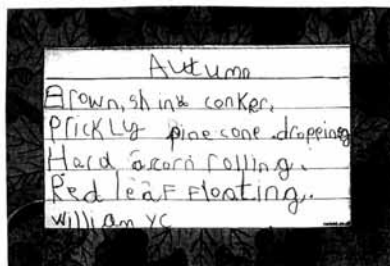 Autumn
Brown, shink conker.
Prickly pine cone .dropping
Hard acorn rolling.
Red leaf Floating.
William YC